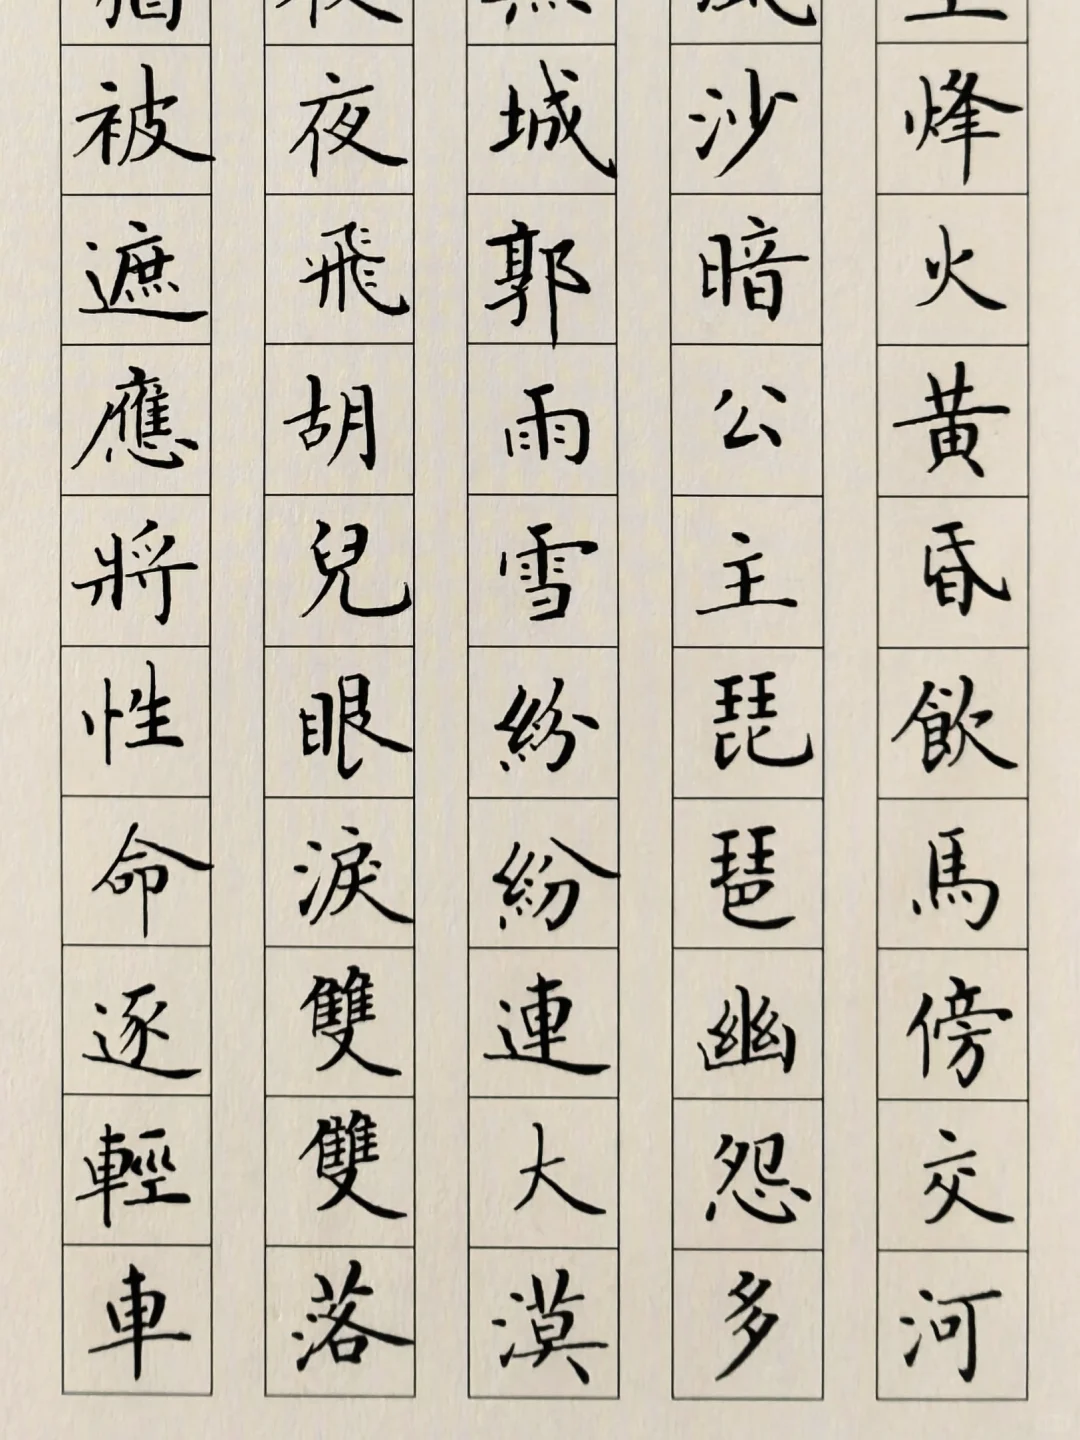 烽火黃昏飲馬傍交河
沙暗公主琵琶幽怨多
城郭雨雪紛紛連大漠
夜飛胡兒眼淚雙雙落
被遮應將性命逐輕車